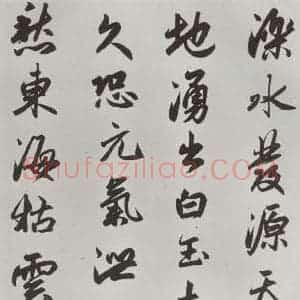 濼水發源天
地湧出白玉
久恐元氣泄
愁東海枯雲
Shufaziliao.COM